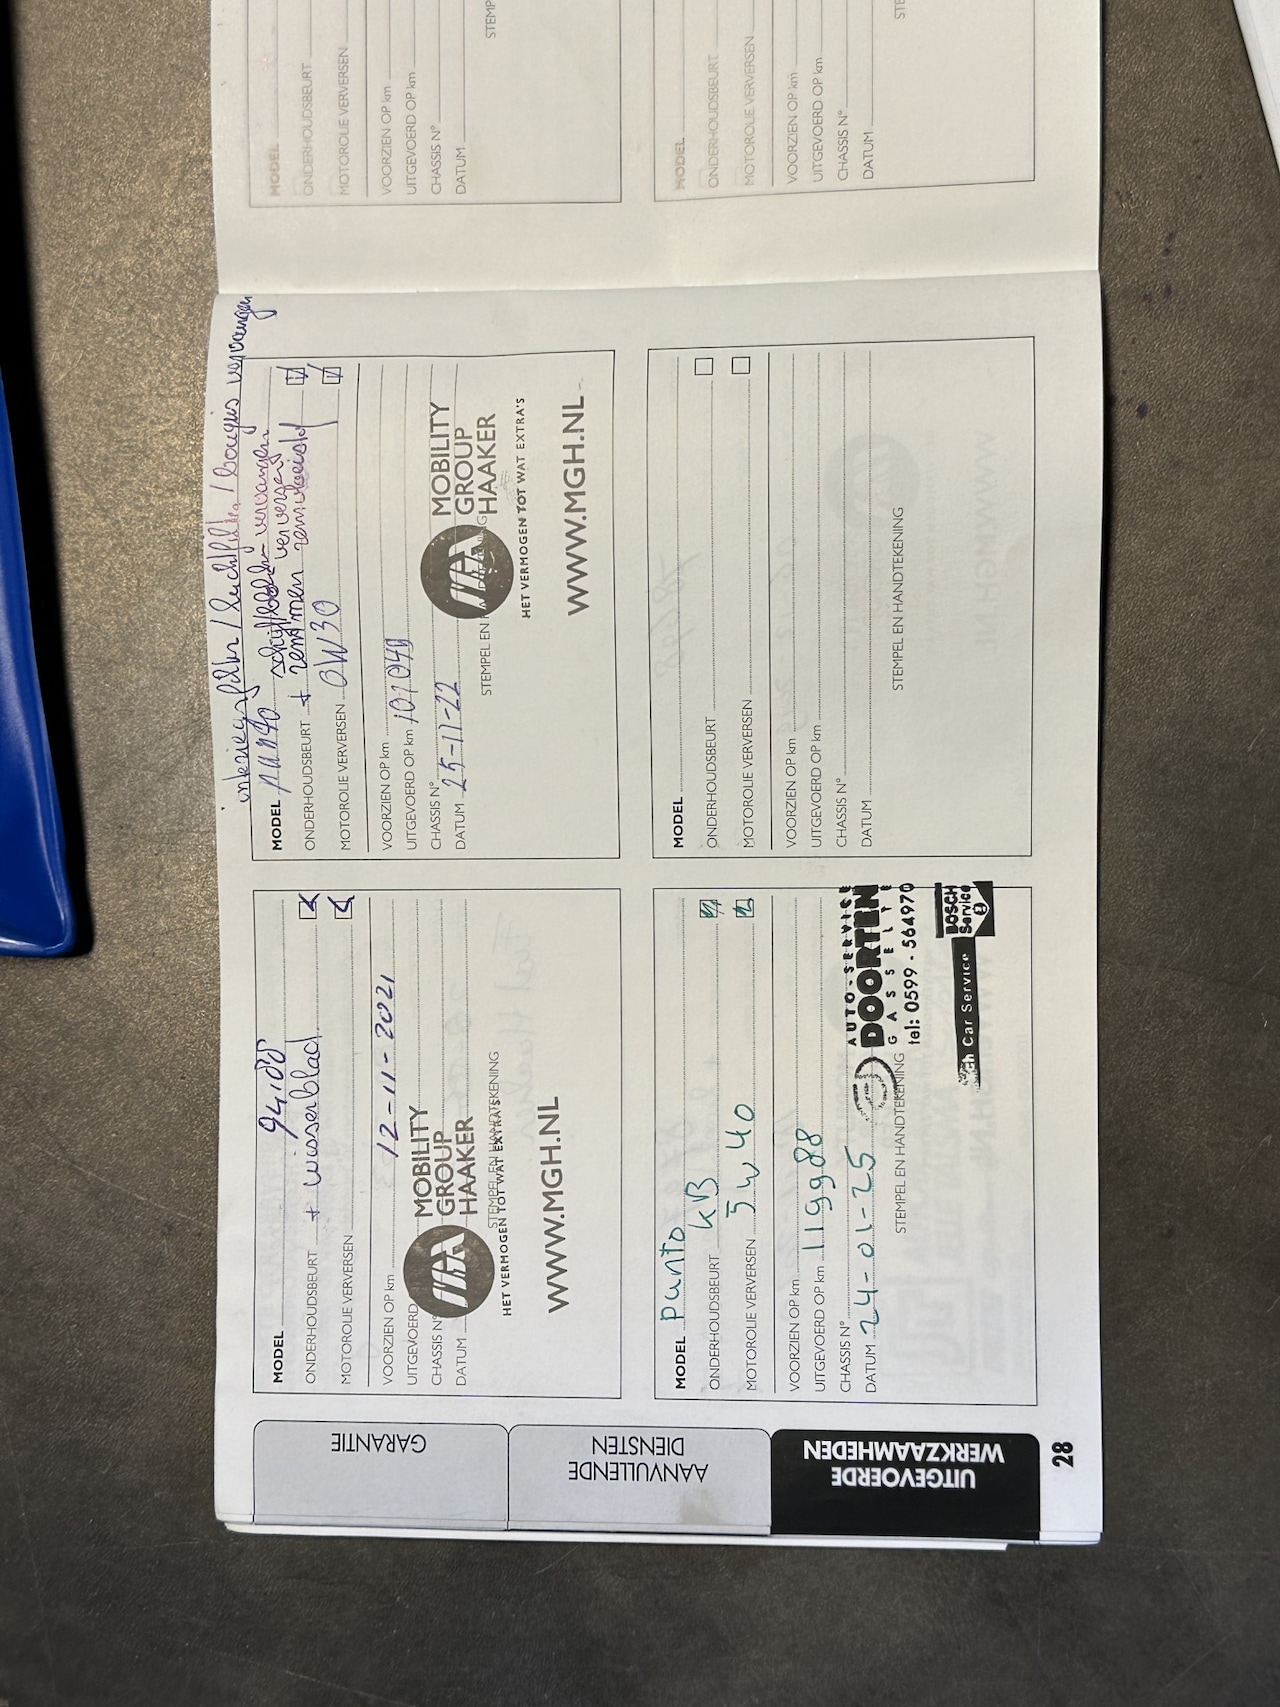 UITGEVOERDE
WERKZAAMHEDEN
AANVULLENDE
DIENSTEN
GARANTIE
28
94188
MODEL
ONDERHOUDSBEURT + wisserblad.
MOTOROLIE VERVERSEN
VOORZIEN OP km 12-11-2021
UITGEVOERD
CHASSIS N°
DATUM
MOBILITY
GROUP
HAAKER
STEMPEL EN HANDTEKENING
HET VERMOGEN TOT WAT EXTRA'S
WWW.MGH.NL
interieurfilter / luchtfilter / bougies vervangen
MODEL punto
vervangen
ONDERHOUDSBEURT + remmen remvloeistof
MOTOROLIE VERVERSEN 0W30
VOORZIEN OP km
UITGEVOERD OP km 101040
CHASSIS N°
DATUM 25-11-22
MOBILITY
GROUP
HAAKER
STEMPEL EN HANDTEKENING
HET VERMOGEN TOT WAT EXTRA'S
WWW.MGH.NL
MODEL Punto
ONDERHOUDSBEURT KVB
MOTOROLIE VERVERSEN 5w40
VOORZIEN OP km
UITGEVOERD OP km 119988
CHASSIS N°
DATUM 24-01-25
AUTO-SERVICE
DOORTEN
GASSELTE
tel: 0599 - 564970
STEMPEL EN HANDTEKENING
Car Service
BOSCH
Service
MODEL
ONDERHOUDSBEURT
MOTOROLIE VERVERSEN
VOORZIEN OP km
UITGEVOERD OP km
CHASSIS N°
DATUM
STEMPEL EN HANDTEKENING
MODEL
ONDERHOUDSBEURT
MOTOROLIE VERVERSEN
VOORZIEN OP km
UITGEVOERD OP km
CHASSIS N°
DATUM
MODEL
ONDERHOUDSBEURT
MOTOROLIE VERVERSEN
VOORZIEN OP km
UITGEVOERD OP km
CHASSIS N°
DATUM